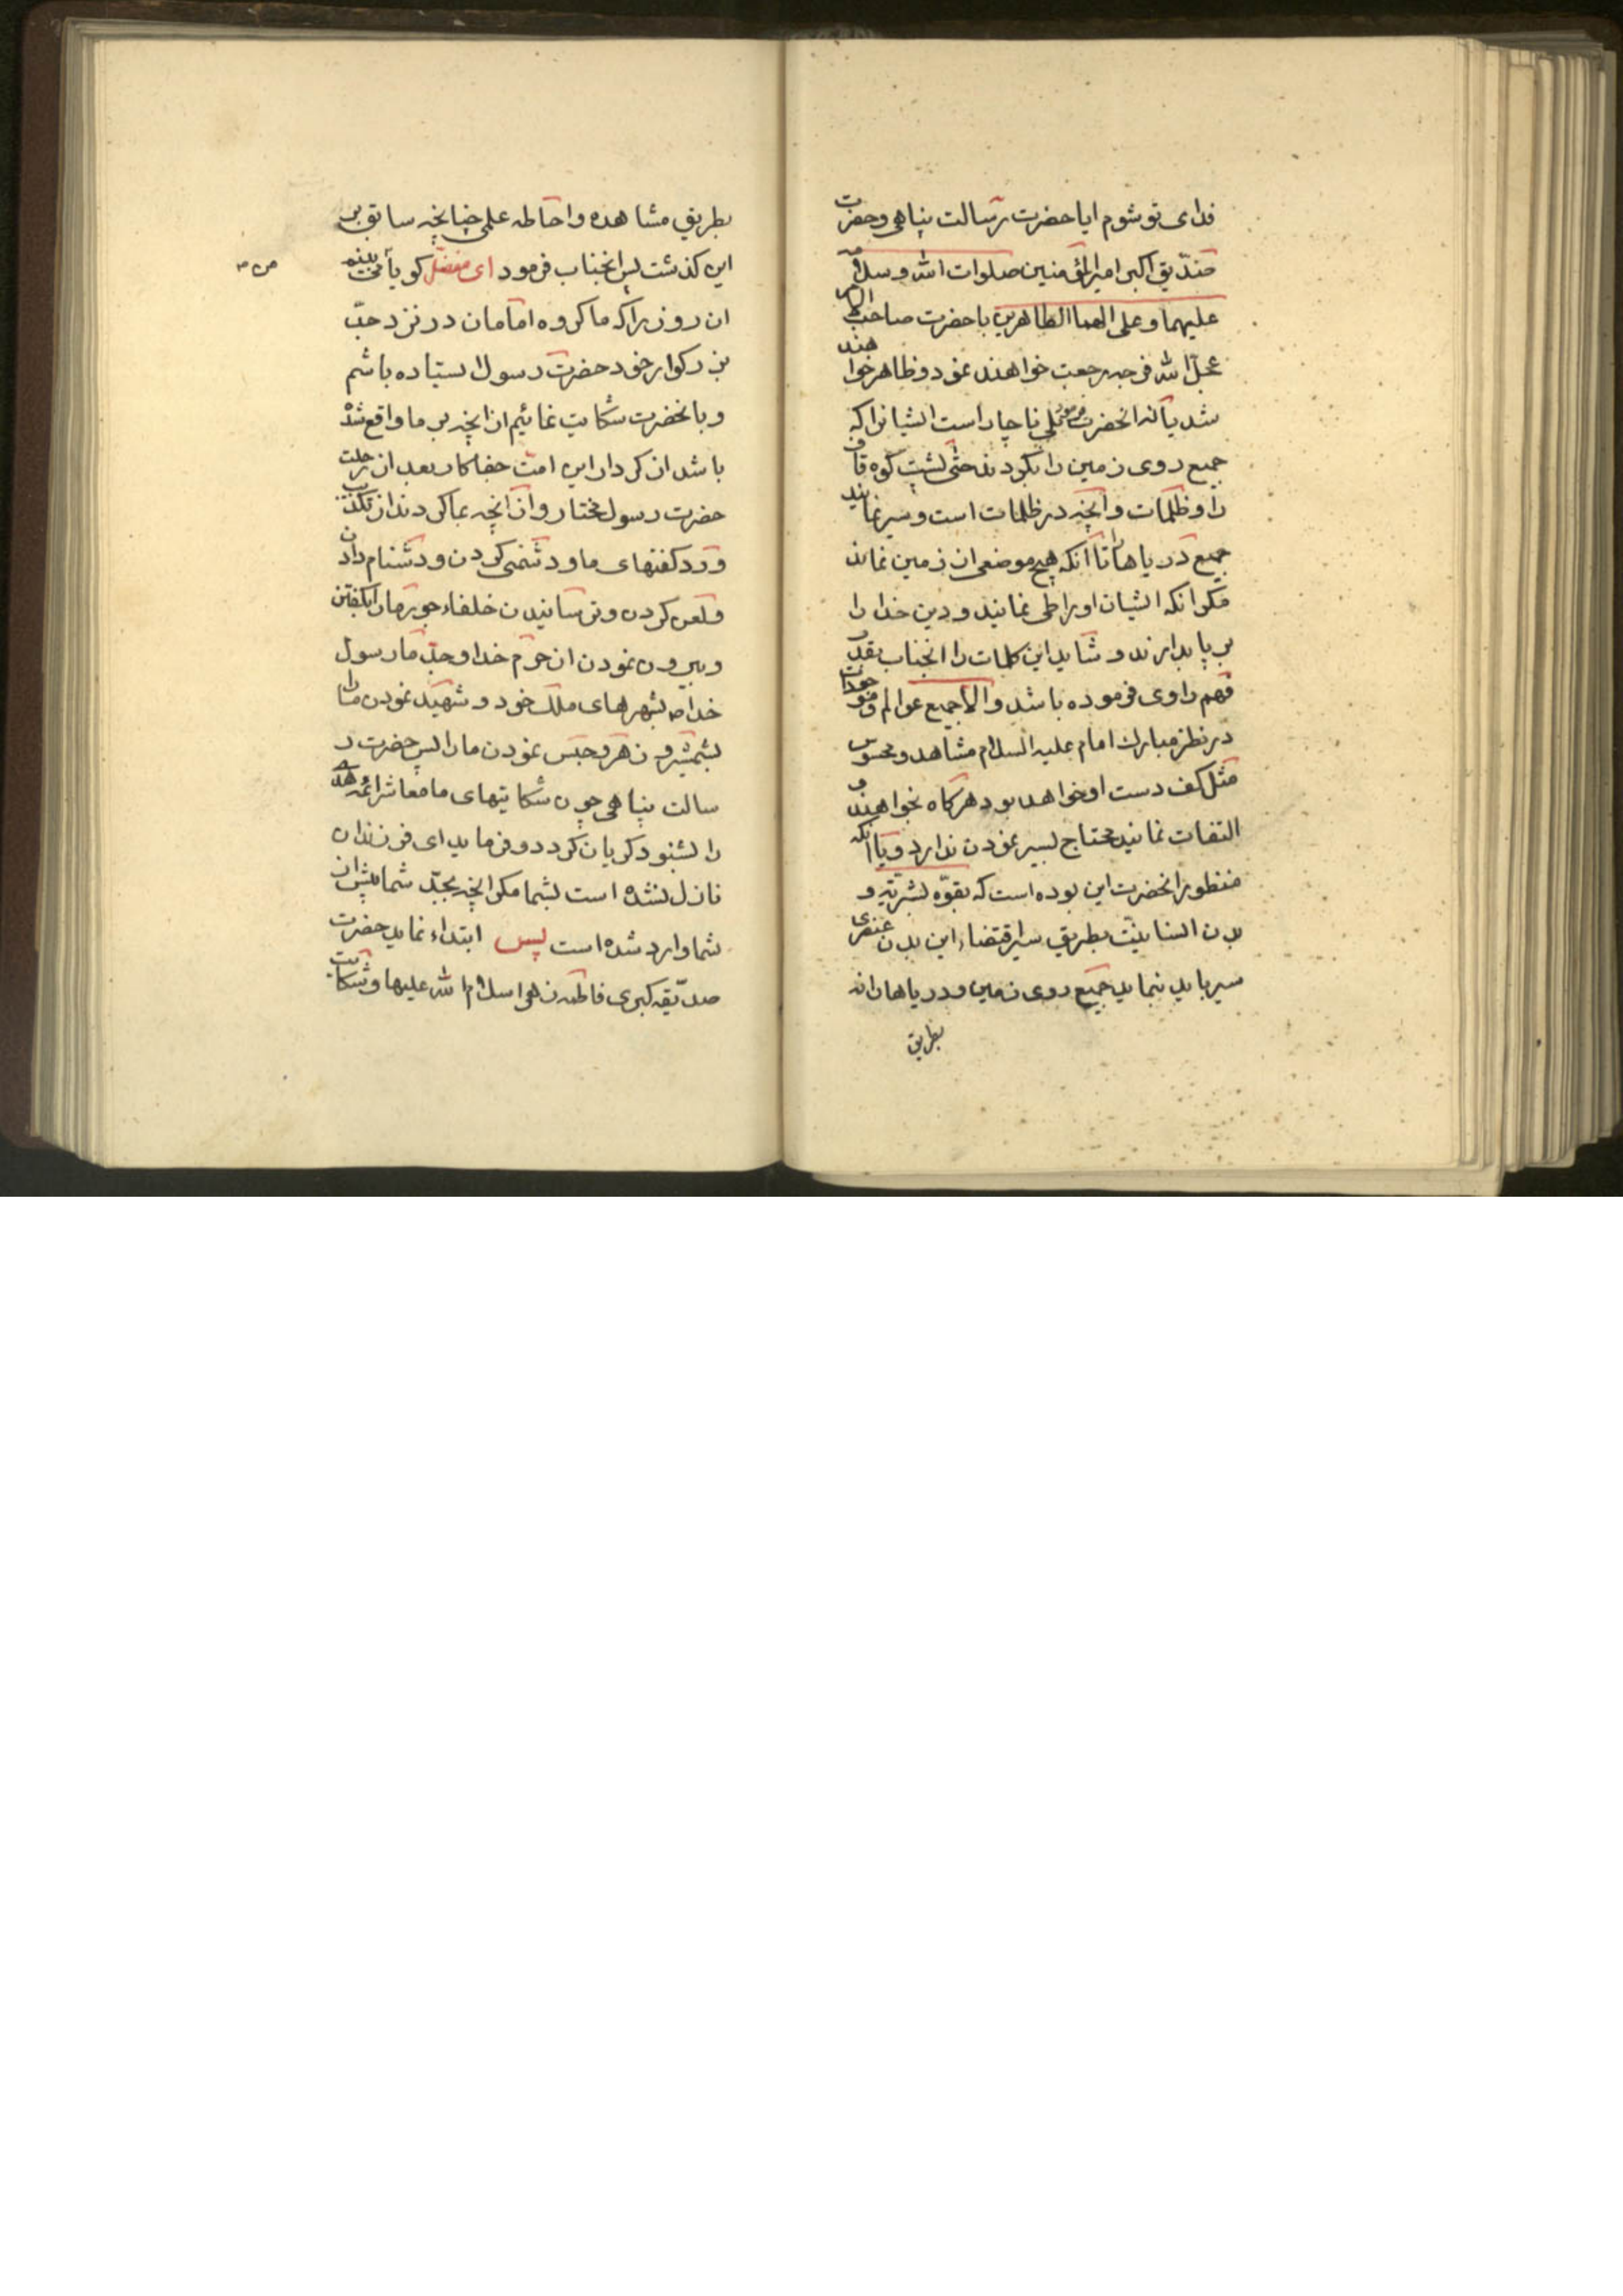 فدای تو شوم ایا حضرت رسالت پناهی و حضرت
صدّیق اکبر امیر المؤمنین صلوات الله و سلامه
علیهما و علی الهما الطاهرین با حضرت صاحب الامر
عجّل الله فرجه رجعت خواهند نمود و ظاهر خواهند
شد یا نه انحضرت فرمود بلی ناچار است ایشانرا که
جمیع روی زمین را بکردند حتّی پشت کوه قاف
را و ظلمات و آنچه در ظلمات است و سیر نمایند
جمیع دریاها را تا آنکه هیچ موضعی از زمین نماند
مکر انکه ایشان اورا طی نمایند و دین خدا را
بر پا بدارند و شاید این کلمات را انجناب بقدر
فهم راوی فرموده باشد و الّا جمیع عوالم و موجودات
در نظر مبارك امام علیه السلام مشاهد و محسوس
مثل کف دست او خواهد بود هرکاه بخواهند و
التفات نمایند محتاج بسیر نمودن ندارد و یا آنکه
منظور انحضرت این بوده است که بقوّه بشریّه و
بدن انسانیّت بطریق سیر اقتضاء این بدن عنصری
سیر باید بنماید جمیع روی زمین و دریاها را نه
بطریق
بطریق مشاهده و احاطه علمی چنانچه سابق بر
این کذشت پس انجناب فرمود ای مفضّل کویا می بینم
ان روز را که ما کروه امامان در نزد جدّ
بزرکوار خود حضرت رسول ایستاده باشم
و بانحضرت شکایت نمائیم از انچه بر ما واقع شده
باشد از کردار این امت جفا کار بعد از رحلت
حضرت رسول مختار و از آنچه بما کردند از تکذیب
و رد کفتهای ما و دشمنی کردن و دشنام دادن
و لعن کردن و ترسانیدن خلفاء جور مارا بکفتن
و بیرون نمودن از حرم خدا و جدّ ما رسول
خدا ص بشهرهای ملك خود و شهید نمودن ما را
بشمشیر و زهر و حبس نمودن ما را پس حضرت ر
سالت پناهی چون شکایتهای ما معاشر ائمه هدی
را بشنود کریان کردد و فرماید ای فرزندان
نازل نشده است بشما مکر انچه بجدّ شما پیش از
شما وارد شده است پس ابتداء نماید حضرت
صدّیقه کبری فاطمه زهرا سلام الله علیها و شکایت